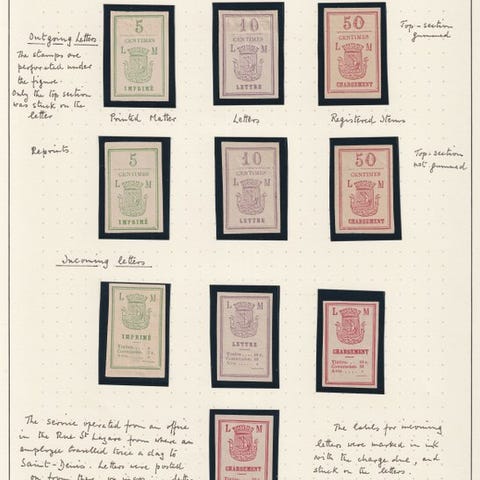 5
CENTIMES
L M
IMPRIMÉ
10
CENTIMES
L M
LETTRE
50
CENTIMES
L M
CHARGEMENT
Top-section
gummed
Outgoing Letters
The stamps are
perforated under
the figure.
Only the top section
was stuck on the
letter
Printed Matter
Letters
Registered Items
Reprints
5
CENTIMES
L M
IMPRIMÉ
10
CENTIMES
L M
LETTRE
50
CENTIMES
L M
CHARGEMENT
Top-section
not gummed
Incoming letters
L M
IMPRIMÉ
Timbre
Commission
L M
LETTRE
Timbre
Commission
L M
CHARGEMENT
Timbre
Commission
L M
CHARGEMENT
The service operated from an office
in the Rue St Lazare from where an
employee travelled twice a day to
Saint-Denis. Letters were posted
on from there
The labels for incoming
letters were marked in ink
with the charge due, and
stuck on the letters.